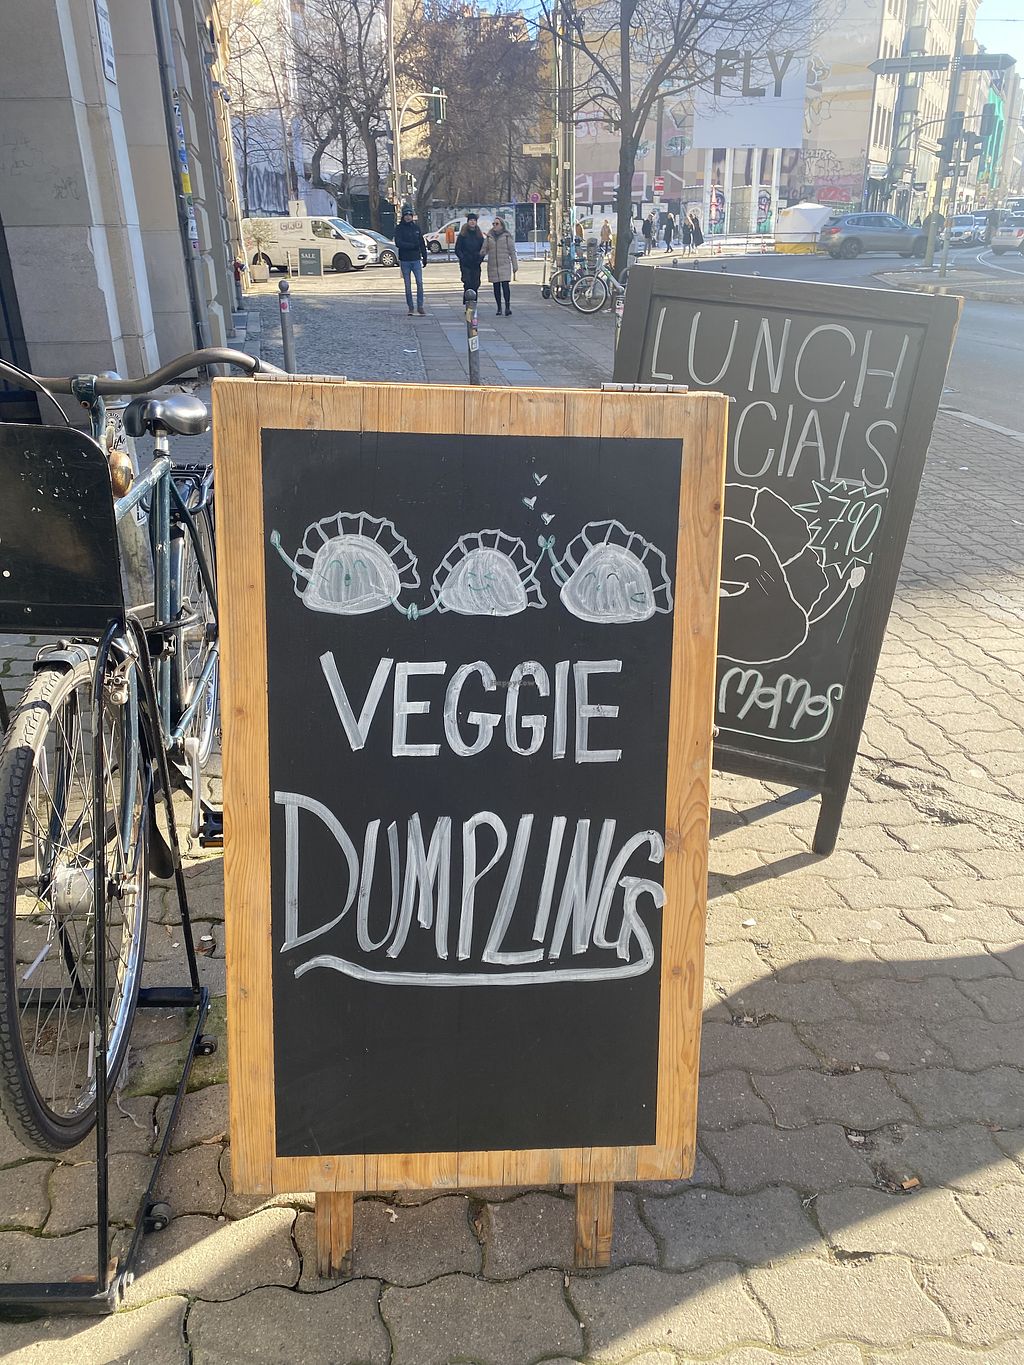 FLY
SALE
LUNCH
CIALS
7,90
MOMOS
VEGGIE
DUMPLINGS